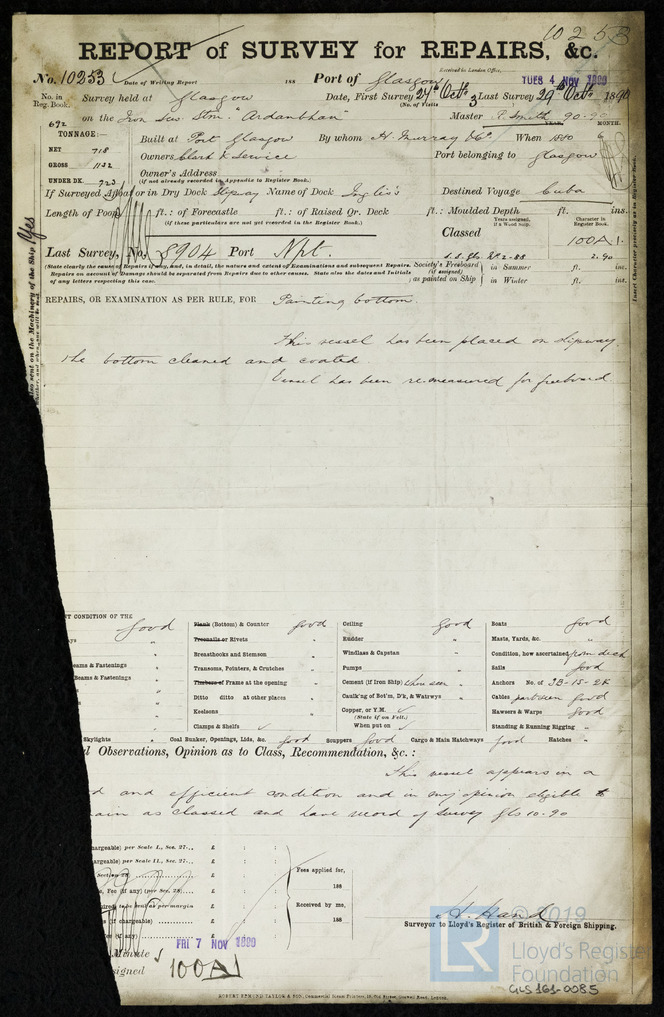 10253
REPORT of SURVEY for REPAIRS, &c.
Received in London Office,
No. 10253 Date of Writing Report 188 Port of Glasgow TUES 4 NOV 1890
No. in Reg. Book. Survey held at Glasgow Date, First Survey 24th Octr Last Survey 29th Octr 1890
(No. of Visits 3
692 on the Iron Scw. Stm. Ardanbhan Master R. Smith 90-90
TONNAGE: MONTH.
Built at Port Glasgow By whom H. Murray & Co. When 1880 6
NET 718 Owners Clark & Service Port belonging to Glasgow
GROSS 1132 Owner's Address
(If not already recorded in Appendix to Register Book.)
UNDER DK. 723
If Surveyed Afloat or in Dry Dock Slipway Name of Dock Inglis's Destined Voyage Cuba
Length of Poop ft.: of Forecastle ft.: of Raised Qr. Deck ft.: Moulded Depth ft. ins.
(if these particulars are not yet recorded in the Register Book.)
Years assigned, if a Wood Ship.
Character in Register Book.
Classed 100A1.
Last Survey, No. 8904 Port Npt. 2.90
(State clearly the cause of Repairs if any, and, in detail, the nature and extent of Examinations and subsequent Repairs. Repairs on account of Damages should be separated from Repairs due to other causes. State also the dates and Initials of any letters respecting this case.
Society's Freeboard (if assigned) as painted on Ship in Summer ft. ins.
in Winter ft. ins.
Insert Character precisely as in Register Book.
REPAIRS, OR EXAMINATION AS PER RULE, FOR Painting bottom.
This vessel has been placed on slipway
the bottom cleaned and coated.
Vessel has been remeasured for freeboard.
NT CONDITION OF THE
good
(Bottom) & Counter good
Ceiling good
Boats good
or Rivets "
Rudder "
Masts, Yards, &c. "
Breasthooks and Stemson "
Windlass & Capstan "
Condition, how ascertained from deck
eams & Fastenings "
Transoms, Pointers, & Crutches "
Pumps "
Sails good
Beams & Fastenings "
Frame at the opening "
Cement (if Iron Ship) where seen "
Anchors No. of 3B-1S-2K
Ditto ditto at other places "
Caulk'ng of Bot'm, D'k, & Watrwys "
Cables part seen good
Keelsons "
Copper, or Y.M. ✓
(State if on Felt.)
Hawsers & Warps good
Clamps & Shelfs ✓
When put on ✓
Standing & Running Rigging "
Skylights " Coal Bunker, Openings, Lids, &c. good Scuppers good Cargo & Main Hatchways good Hatches "
l Observations, Opinion as to Class, Recommendation, &c.:
This vessel appears in a
d and efficient condition and in my opinion eligible to
ain as classed and have record of survey Gls 10.90
hargeable) per Scale I., Sec. 27... £ : :
hargeable) per Scale II., Sec. 27... £ : :
Section 28) £ : :
Fees applied for,
188
e, Fee (if any) (per Sec. 28) £ : :
Received by me,
188
(if chargeable) £ : :
(if any) £ : :
H. Hand
Surveyor to Lloyd's Register of British & Foreign Shipping.
Minute FRI 7 NOV 1890
signed 100A1
ROBERT EDMUND TAYLOR & SON, Commercial Steam Printers, 19, Old Street, Goswell Road, London.
© 2019
LR
Lloyd's Register
Foundation
GLS161-0085